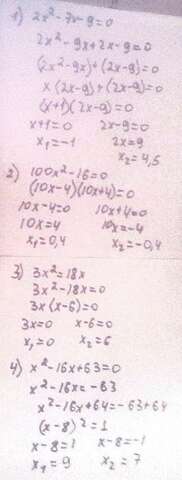 1) 2x²-7x-9=0
2x²-9x+2x-9=0
(2x²-9x)+(2x-9)=0
x(2x-9)+(2x-9)=0
(x+1)(2x-9)=0
x+1=0 2x-9=0
x₁=-1 2x=9
x₂=4,5
2) 100x²-16=0
(10x-4)(10x+4)=0
10x-4=0 10x+4=0
10x=4 10x=-4
x₁=0,4 x₂=-0,4
3) 3x²=18x
3x²-18x=0
3x(x-6)=0
3x=0 x-6=0
x₁=0 x₂=6
4) x²-16x+63=0
x²-16x=-63
x²-16x+64=-63+64
(x-8)²=1
x-8=1 x-8=-1
x₁=9 x₂=7